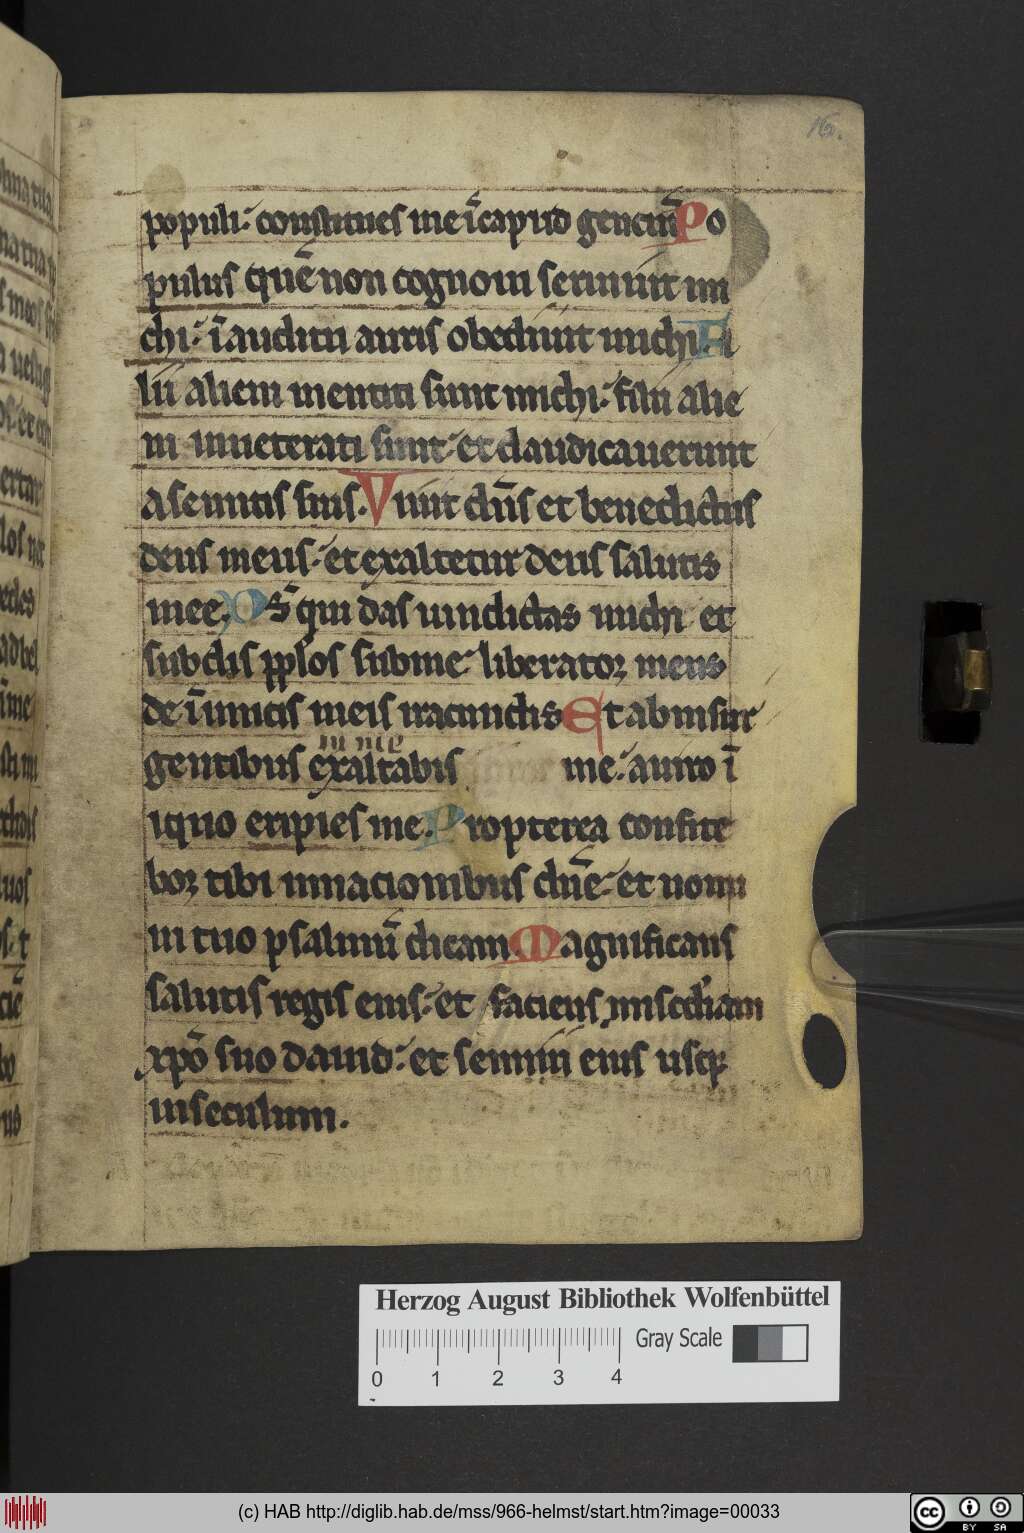 16.
populi· constitues me ī capud genciū Po
pulus quē non cognoui seruiuit mi
chi· ī auditu auris obediuit michi· Fi
lii alieni mentiti sunt michi· filii alie
ni inueterati sunt· et claudicauerunt
a semitis suis. Viuit dn̄s et benedictus
deus meus· et exaltetur deus salutis
mee. Ds̄ qui das uindictas michi et
subdis pplos sub me· liberatoꝛ meus
de īimicis meis iracundis Et ab insur
in me
gentibus exaltabis me· a uiro ī
iquo eripies me. Propterea confite
boꝛ tibi in nacionibus dn̄e· et nomi
ni tuo psalmū dicam. Magnificans
salutis regis eius· et faciens misc̄diam
xpō suo dauid· et semini eius usqꝫ
in seculum.
Herzog August Bibliothek Wolfenbüttel
Gray Scale
0 1 2 3 4
(c) HAB http://diglib.hab.de/mss/966-helmst/start.htm?image=00033
cc BY SA